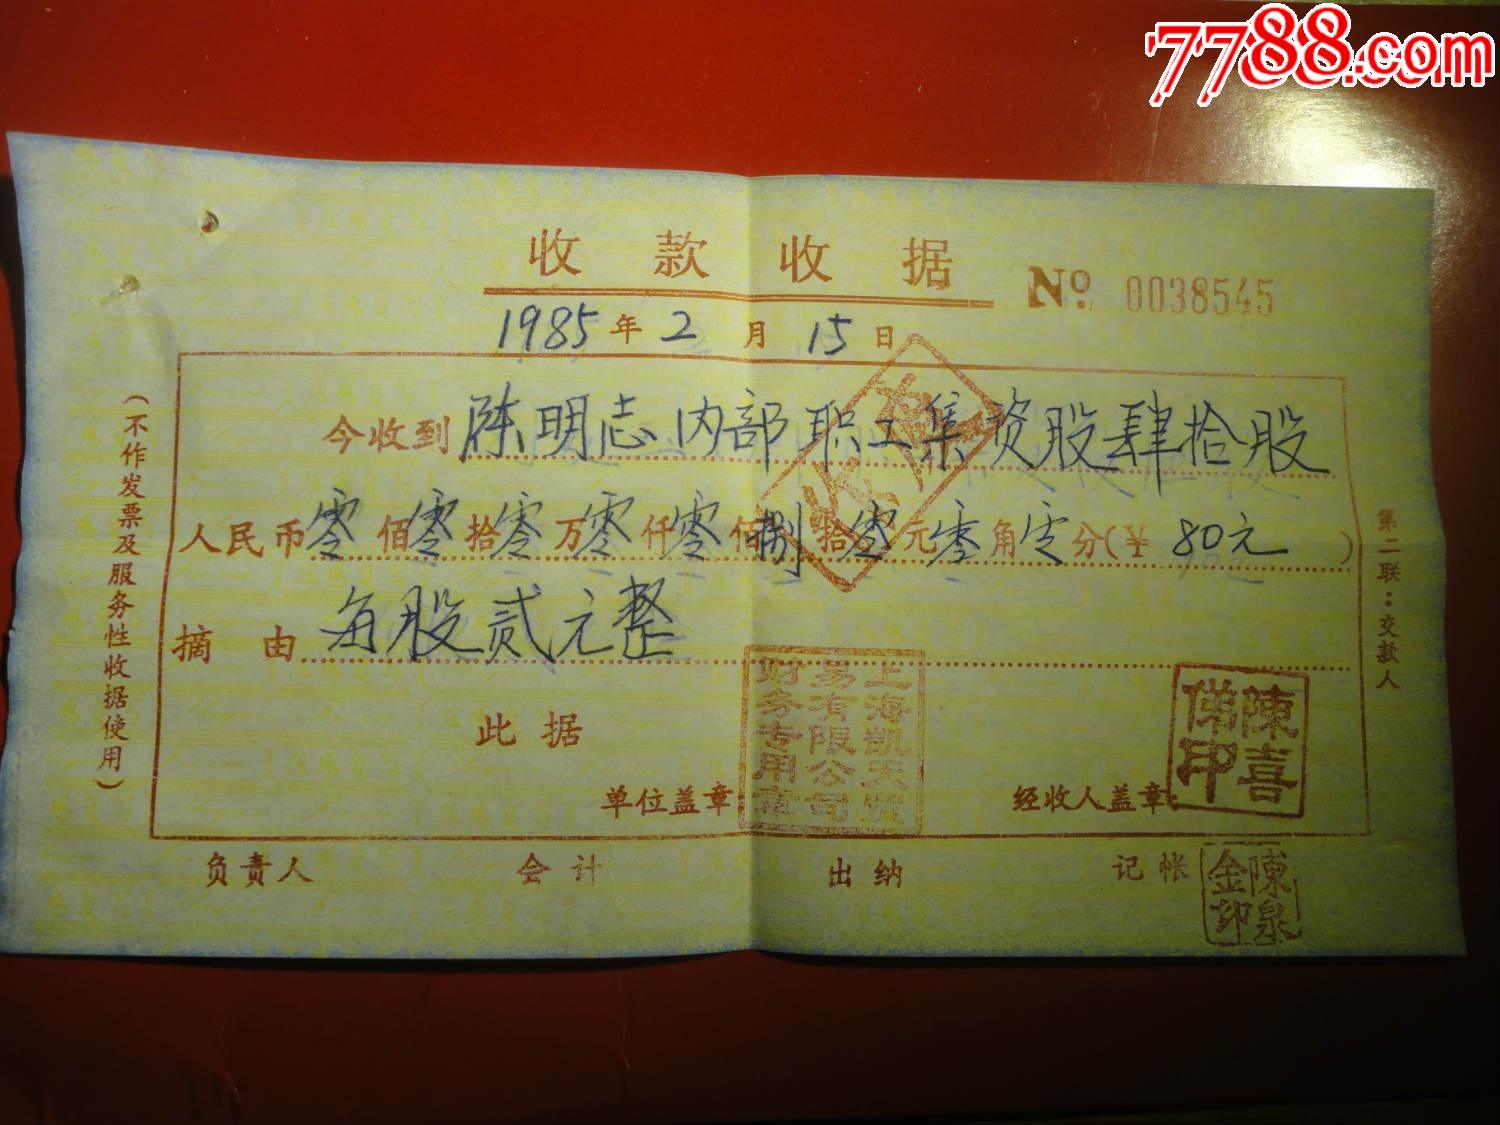 7788.com
收款收据
No 0038545
1985年2月15日
今收到陈明志内部职工集资股肆拾股
人民币零佰零拾零万零仟零佰捌拾零元零角零分(￥80元)
摘由每股贰元整
此据
单位盖章:
上海凯天贸
易有限公司
财务专用章
经收人盖章:
陳喜
俤印
负责人 会计 出纳 记帐
陳泉
金印
(不作发票及服务性收据使用)
第二联:交款人